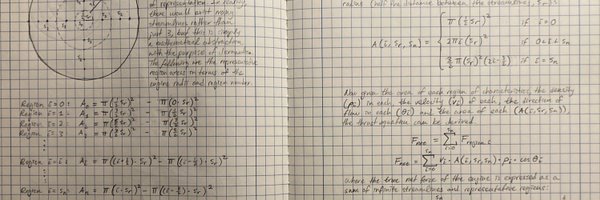 of representation. In reality,
there would exist many
streamlines rather than
just 3, but this is simply
a mathematical abstraction
with the purpose of
The following are the representative
region areas in terms of the
engine radii and region number
Region i=0: A₀ = π(½Sr)² - π(0·Sr)²
Region i=1: A₁ = π(3/2 Sr)² - π(½Sr)²
Region i=2: A₂ = π(5/2 Sr)² - π(3/2 Sr)²
Region i=3: A₃ =
Region i=i: Aᵢ = π((i+½)·Sr)² - π((i-½)·Sr)²
Region i=Sn: Aₙ = π(i·Sr)² - π((i-½)·Sr)²
radii (half the distance between the streamlines, Sr):
π(½Sr)² if i=0
A(i, Sr, Sn) = 2πi(Sr)² if 0<i<Sn
if i=Sn
Now given the area of each region of characteristics, the density
(ρᵢ) in each, the velocity (Vᵢ) of each, the direction of
flow in each (θᵢ) and the area of each (A(i, Sr, Sn)),
the thrust equation can be derived
Fnet = Σ Fregion i
Fnet = Σ Vᵢ · A(i, Sr, Sn) · ρᵢ · cos θᵢ
where the true net force of the engine is expressed as a
sum of infinite streamlines and representative regions: